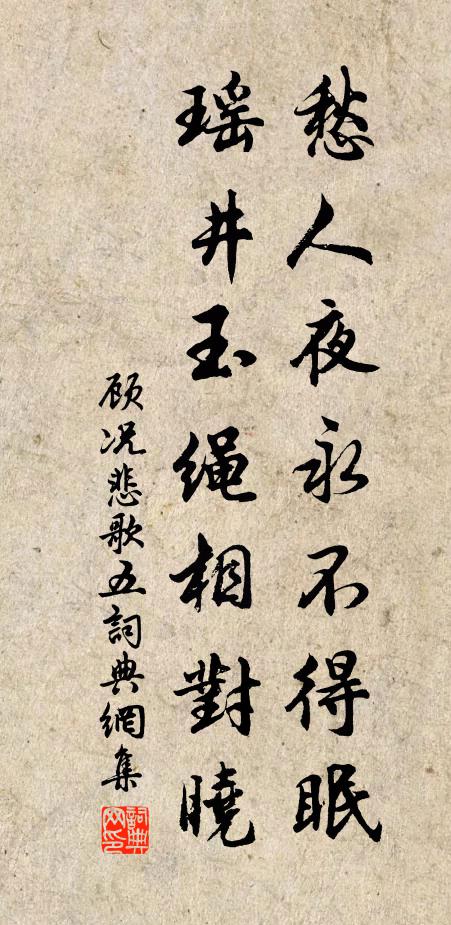 愁人夜永不得眠
瑶井玉绳相對曉
顾况悲歌五詞典網集
詞典网印